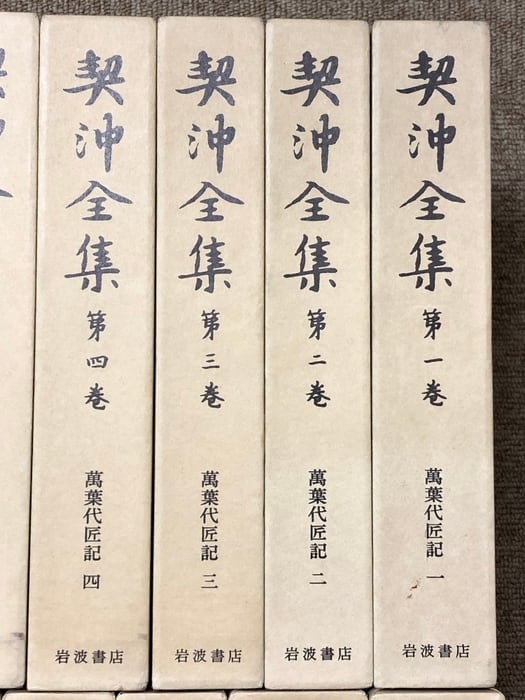 契沖全集 第一巻
萬葉代匠記 一
岩波書店
契沖全集 第二巻
萬葉代匠記 二
岩波書店
契沖全集 第三巻
萬葉代匠記 三
岩波書店
契沖全集 第四巻
萬葉代匠記 四
岩波書店